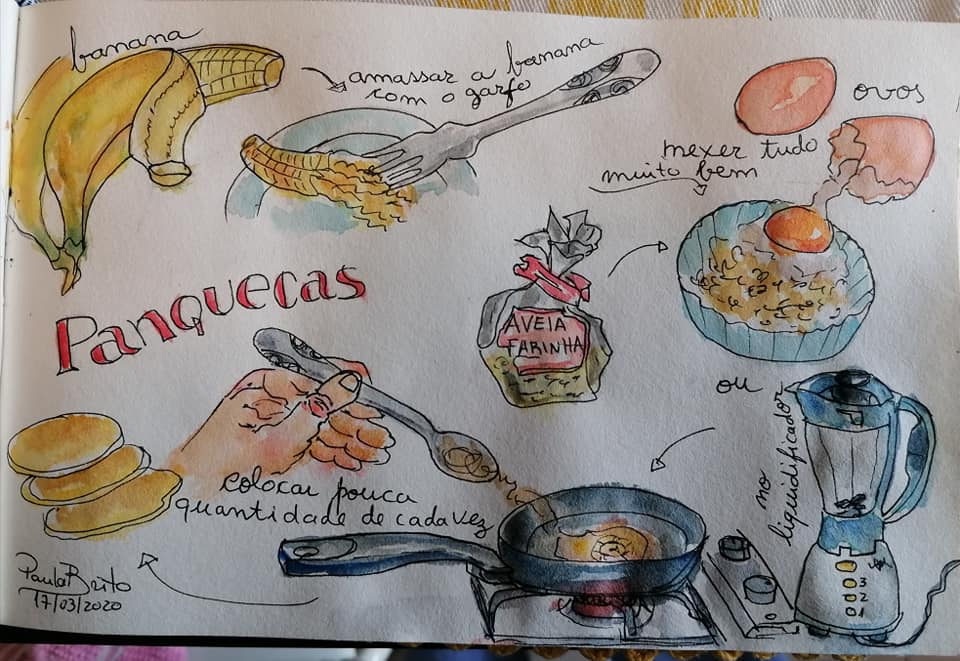 banana
amassar a banana
com o garfo
ovos
mexer tudo
muito bem
Panquecas
AVEIA
FARINHA
ou
no
liquidificador
colocar pouca
quantidade de cada vez
3
2
1
Paula Brito
17/03/2020